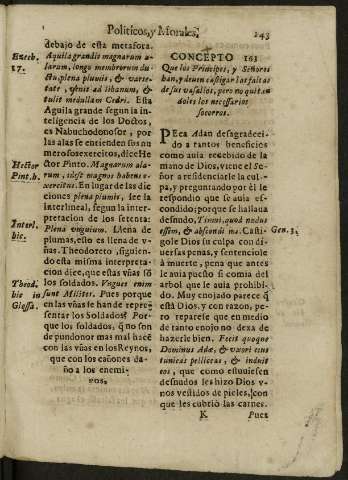 Politicos, y Morales. 243
debajo de esta metafora.
Ezech. 17.
Aquila grandis magnarum a-
larum, longo membrorum du-
ctu, plena plumis, & varie-
tate, venit ad libanum, &
tulit medullam Cedri. Esta
Aguila grande segun la in-
teligencia de los Doctos,
es Nabuchodonosor, por
las alas se entienden sus nu
merosos exercitos, dice He
Hector Pint. h.
ctor Pinto. Magnarum ala-
rum, idest magnos babens e-
xercitus. En lugar de las di-
ciones plena plumis, lee la
Interlineal, segun la inter-
pretacion de los setenta:
Interl. hic.
Plena unguium. Llena de
plumas, esto es llena de v-
ñas. Theodoreto, siguien-
do esta misma interpreta-
cion dice, que estas vñas sõ
Theod. hic in Glossa.
los soldados. Vngues enim
sunt Milites. Pues porque
en las vñas se han de repre-
sentar los Soldados? Por
que los soldados, q̃ no son
de pundonor mas mal hacẽ
con las vñas en los Reynos,
que con los cañones da-
ño a los enemi-
gos.
CONCEPTO 163
Que los Principes, y Señores
han, y deuen castigar las faltas
de sus vasallos, pero no quitan
doles los necessarios
socorros.
PEca Adan desagradeci-
do a tantos beneficios
como auia recebido de la
mano de Dios, viene el Se-
ñor a residenciarle la cul-
pa, y preguntando por èl le
respondio que se auia es-
condido; porque se hallaua
desnudo, Timui, quod nudus
essem, & abscondi me. Casti- Gen. 3.
gole Dios su culpa con di-
uersas penas, y sentenciole
à muerte, pena que antes
le auia puesto si comia del
arbol que le auia prohibi-
do. Muy enojado parece q̃
està Dios, y con razon, pe-
ro reparese que en medio
de tanto enojo no dexa de
hazerle bien. Fecit quoque
Dominus Adæ, & vxori eius
tunicas pelliceas, & induit
eos, que como estuuiesen
desnudos les hizo Dios v-
nos vestidos de pieles, con
que les cubriò las carnes.
K Pues